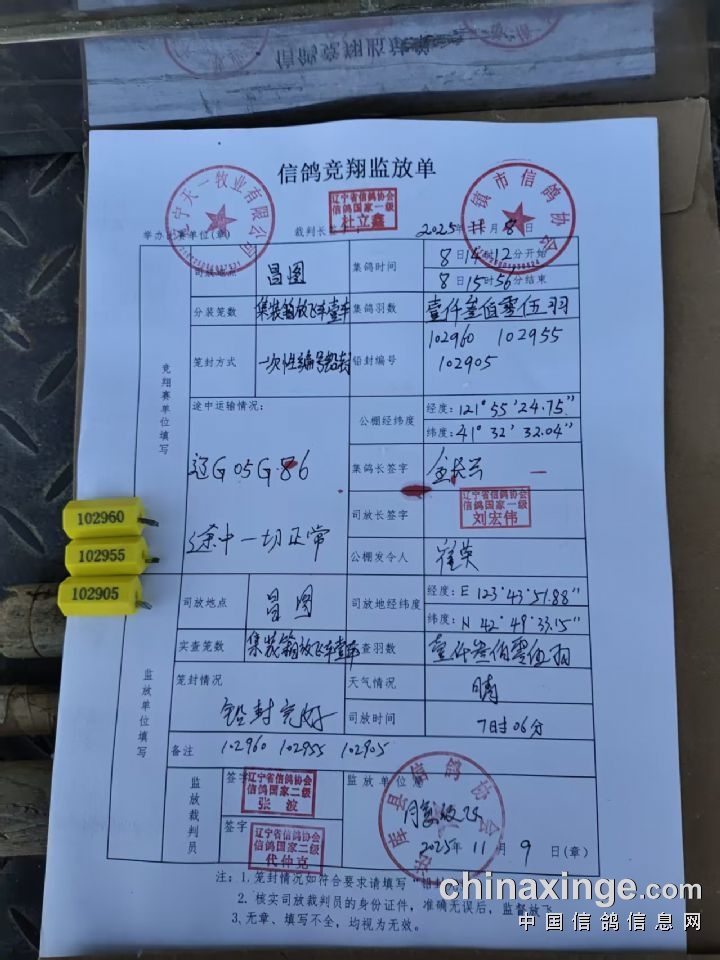 信鸽竞翔监放单
辽宁天一牧业有限公司
镇市信鸽协会
辽宁省信鸽协会
信鸽国家一级
杜立鑫
举办比赛单位(章)
裁判长签
2025年 月8日
竞翔赛单位填写
司放地点 昌图
集鸽时间
8日14时12分开始
8日15时56分结束
分装笼数 集装箱放飞车壹车
集鸽羽数 壹仟叁佰零伍羽
笼封方式 一次性编号铅封
铅封编号 102960 102955
102905
途中运输情况:
辽G05G86
途中一切正常
公棚经纬度
经度: 121°55'24.75"
纬度: 41°32'32.04"
集鸽长签字
司放长签字
辽宁省信鸽协会
信鸽国家一级
刘宏伟
公棚发令人
102960
102955
102905
监放单位填写
司放地点 昌图
司放地经纬度
经度: E 123°43'51.88"
纬度: N 42°49'33.15"
实查笼数 集装箱放飞车壹车
查羽数 壹仟叁佰零伍羽
笼封情况 铅封完好
天气情况 晴
司放时间 7时06分
备注 102960 102955 102905
监放裁判员
签字
辽宁省信鸽协会
信鸽国家二级
张波
签字
辽宁省信鸽协会
信鸽国家二级
代仲克
监放单位意
库县信鸽协会
2025年11月9日(章)
注:1.笼封情况如符合要求请填写"铅封
2.核实司放裁判员的身份证件,准确无误后,监督放飞
3.无章、填写不全,均视为无效。
chinaxinge.com
中国信鸽信息网